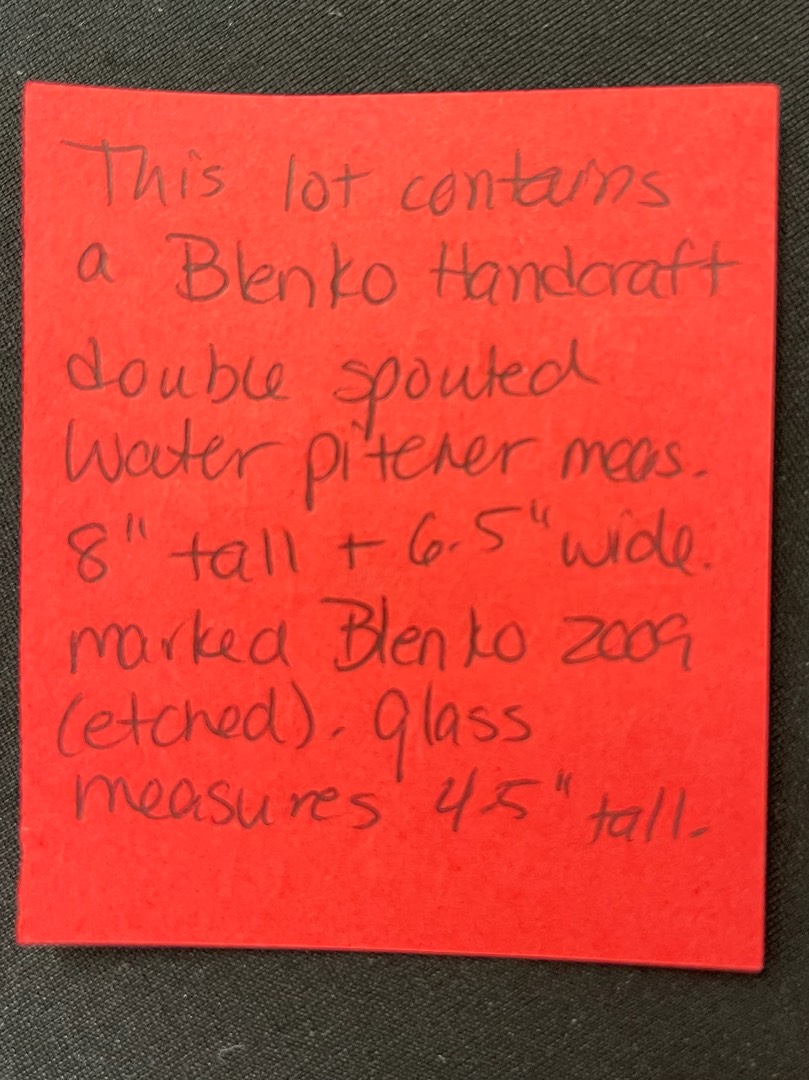 This lot contains
a Blenko Handcraft
double spouted
Water pitcher meas.
8" tall + 6.5" wide.
marked Blenko 2009
(etched). glass
measures 4.5" tall.